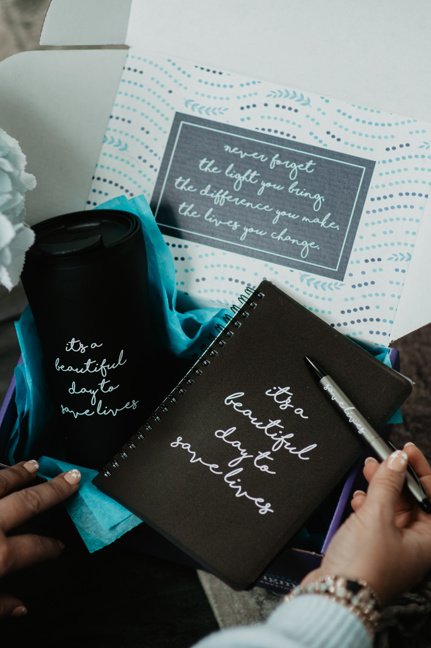 never forget
the light you bring,
the difference you make,
the lives you change.
it's a
beautiful
day to
save lives
it's a
beautiful
day to
save lives